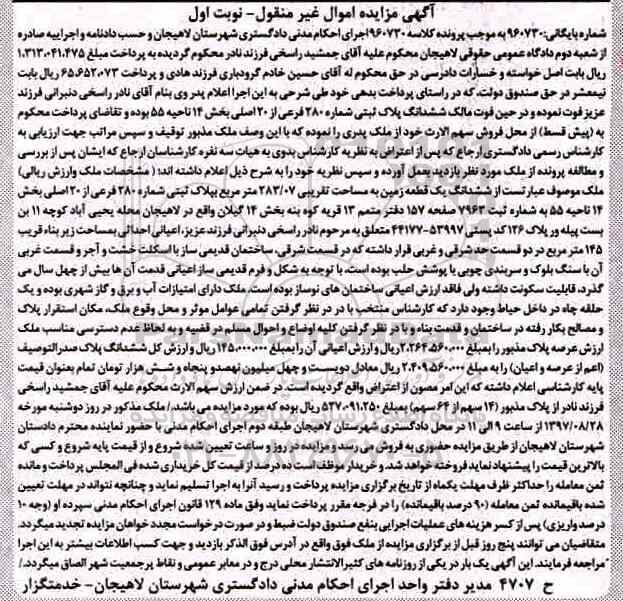 آگهی مزایده اموال غیر منقول- نوبت اول
شماره بایگانی: ۹۶۰۷۳۰ به موجب پرونده کلاسه ۹۶۰۷۳۰ اجرای احکام مدنی دادگستری شهرستان لاهیجان و حسب دادنامه و اجراییه صادره
از شعبه دوم دادگاه عمومی حقوقی لاهیجان محکوم علیه آقای جمشید راسخی فرزند نادر محکوم گردیده به پرداخت مبلغ ۱.۳۱۳.۰۴۱.۴۷۵
ریال بابت اصل خواسته و خسارات دادرسی در حق محکوم له آقای حسین خادم گرودباری فرزند هادی و پرداخت ۶۵.۶۵۲.۰۷۳ ریال بابت
نیمعشر در حق صندوق دولت، که در راستای پرداخت بدهی خود طی شرحی به این اجرا اعلام پدر وی بنام آقای نادر راسخی دنبرانی فرزند
عزیز فوت نموده و در حین فوت مالک ششدانگ پلاک ثبتی شماره ۲۸۰ فرعی از ۲۰ اصلی بخش ۱۴ ناحیه ۵۵ بوده و تقاضای پرداخت محکوم
به (پیش قسط) از محل فروش سهم الارث خود از ملک پدری را نموده که با این وصف ملک مذبور توقیف و سپس مراتب جهت ارزیابی به
کارشناس رسمی دادگستری ارجاع که پس از اعتراض به نظریه کارشناس بدوی به هیات سه نفره کارشناسان ارجاع که ایشان پس از بررسی
و مطالعه پرونده از ملک مورد نظر بازدید بعمل آورده و سپس نظریه خود را به شرح ذیل اعلام داشته اند: ( مشخصات ملک وارزش ریالی)
ملک موصوف عبارتست از ششدانگ یک قطعه زمین به مساحت تقریبی ۲۸۳/۰۷ متر مربع بپلاک ثبتی شماره ۲۸۰ فرعی از ۲۰ اصلی بخش
۱۴ ناحیه ۵۵ به شماره ثبت ۷۹۶۳ صفحه ۱۵۷ دفتر متمم ۱۳ قریه کوه بنه بخش ۱۴ گیلان واقع در لاهیجان محله یحیی آباد کوچه ۱۱ بن
بست پیله ور پلاک ۱۲۶ کد پستی ۵۳۹۹۷-۴۴۱۷۷ متعلق به مرحوم نادر راسخی دنبرانی فرزند عزیز، اعیانی احداثی بمساحت زیر بناء قریب
۱۴۵ متر مربع در دو قسمت حد شرقی و غربی قرار داشته که در قسمت شرقی، ساختمان قدیمی ساز با اسکلت خشت و آجر و قسمت غربی
آن با سنگ بلوک و سربندی چوبی با پوشش حلب بوده است، با توجه به شکل و فرم قدیمی ساز اعیانی قدمت آن ها بیش از چهل سال می
گذرد، قابلیت سکونت داشته ولی فاقد ارزش اعیانی ساختمان های نوساز بوده است، ملک دارای امتیازات آب و برق و گاز شهری بوده و یک
حلقه چاه در داخل حیاط وجود دارد که کارشناس منتخب با در در نظر گرفتن تمامی عوامل موثر و محل وقوع ملک، مکان استقرار پلاک
و مصالح بکار رفته در ساختمان و قدمت بناء و با در نظر گرفتن کلیه اوضاع و احوال مسلم در قضیه و به لحاظ عدم دسترسی مناسب ملک
ارزش عرصه پلاک مذبور را بمبلغ ۲.۲۶۴.۵۶۰.۰۰۰ ریال و ارزش اعیانی آن را بمبلغ ۱۴۵.۰۰۰.۰۰۰ ریال و ارزش کل ششدانگ پلاک صدرالتوصیف
(اعم از عرصه و اعیان) را به مبلغ ۲.۴۰۹.۵۶۰.۰۰۰ ریال معادل دویست و چهل میلیون نهصد و پنجاه و شش هزار تومان تمام بعنوان قیمت
پایه کارشناسی اعلام داشته که این امر مصون از اعتراض واقع گردیده است. در ضمن ارزش سهم الارث محکوم علیه آقای جمشید راسخی
فرزند نادر از پلاک مذبور (۱۴ سهم از ۶۴ سهم) بمبلغ ۵۲۷.۰۹۱.۲۵۰ ریال بوده که مورد مزایده می باشد./ ملک مذکور در روز دوشنبه مورخه
۱۳۹۷/۰۸/۲۸ از ساعت ۹ الی ۱۱ در محل دادگستری شهرستان لاهیجان طبقه دوم اجرای احکام مدنی با حضور نماینده محترم دادستان
شهرستان لاهیجان از طریق مزایده حضوری به فروش می رسد و مزایده در روز و ساعت تعیین شده شروع و از قیمت پایه شروع و کسی که
بالاترین قیمت را پیشنهاد نماید فروخته خواهد شد. و خریدار موظف است ده درصد از قیمت کل خریداری شده فی المجلس پرداخت و مانده
ثمن معامله را حداکثر ظرف مهلت یکماه از تاریخ برگزاری مزایده پرداخت و رسید آنرا به اجرا تسلیم نماید و چنانچه نتواند در مهلت تعیین
شده باقیمانده ثمن معامله (۹۰ درصد باقیمانده) را در فرجه مقرر پرداخت نماید وفق ماده ۱۲۹ قانون اجرای احکام مدنی سپرده او (وجه ۱۰
درصد واریزی) پس از کسر هزینه های عملیات اجرایی بنفع صندوق دولت ضبط و در صورت درخواست مجدد خواهان مزایده تجدید میگردد.
متقاضیان می توانند پنج روز قبل از برگزاری مزایده از ملک فوق واقع در آدرس فوق الذکر بازدید و جهت کسب اطلاعات بیشتر به این اجرا
مراجعه فرمایند. این آگهی یک بار در یکی از روزنامه های کثیرالانتشار محلی درج و در معابر عمومی و نقاط پرجمعیت شهر الصاق میگردد./
ح ۴۷۰۷ مدیر دفتر واحد اجرای احکام مدنی دادگستری شهرستان لاهیجان- خدمتگزار